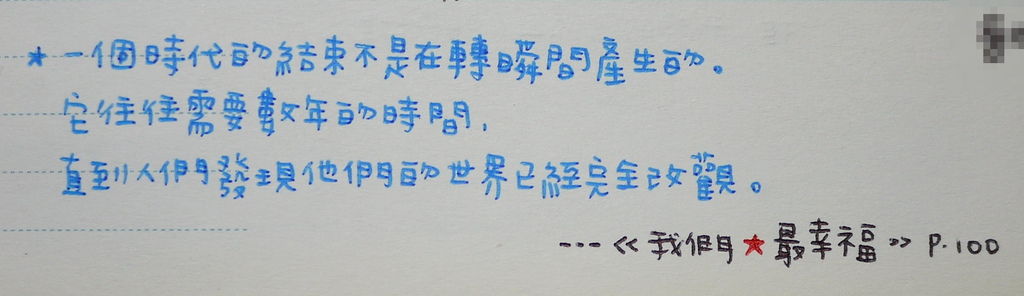 ★一個時代的結束不是在轉瞬間產生的。
它往往需要數年的時間,
直到人們發現他們的世界已經完全改觀。
---《我們★最幸福》P.100